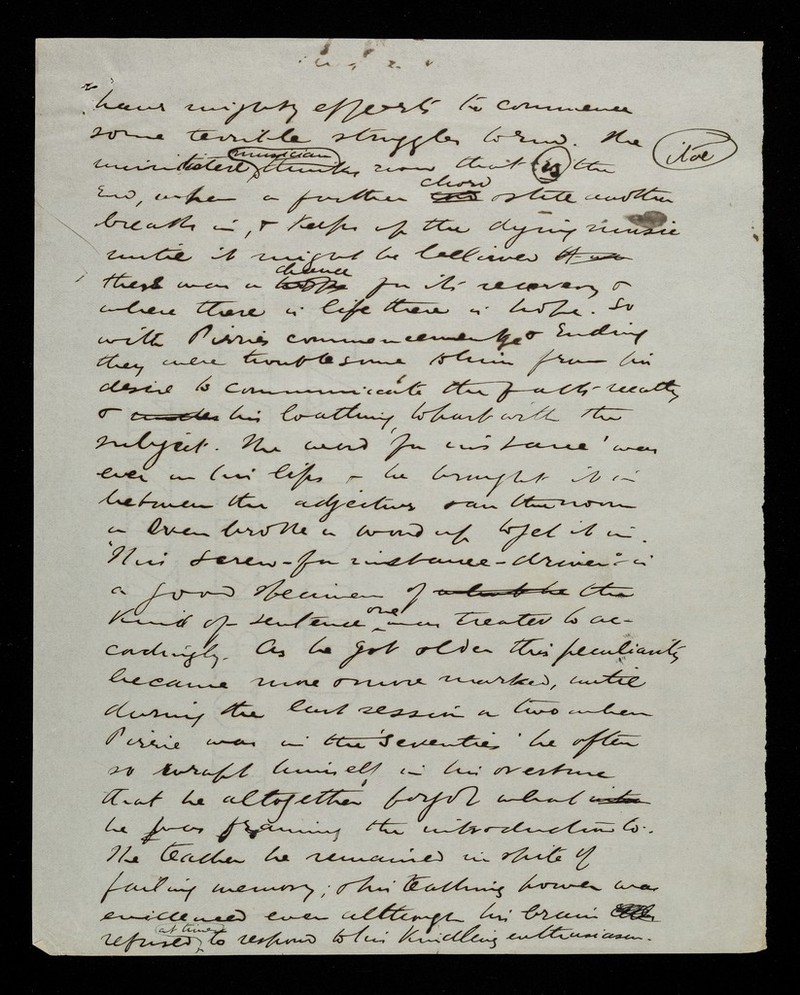 have mighty efforts to commence
some terrible struggles to end. The
musician thinks now that is the
End, when a further chord state another
breath in, & Keeps up the dying music
until it might be believed
there was a chance for its recovery &
where there is life there is hope. So
with Pirie's commencements & Ending
they were troublesome to him from his
desire to communicate the facts neatly
& his loathing to part with the
subject. The word 'for instance' was
ever on his lips & he brought it in
between the adjective & the noun
or Even broke a word up to get it in.
"This screw-for instance-driver" is
a good specimen of the
Kind of sentence one was treated to ac-
cordingly. As he got older this peculiarity
became more & more marked, until
during the last session or two when
Pirie was in the 'Seventies' he often
so wrapt himself in his overture
that he altogether forgot what
he was framing the introduction to.
The teacher he remained in spite of
failing memory; & his teaching power was
evidenced even although his brain
refused, at times, to respond to his Kindling enthusiasm.